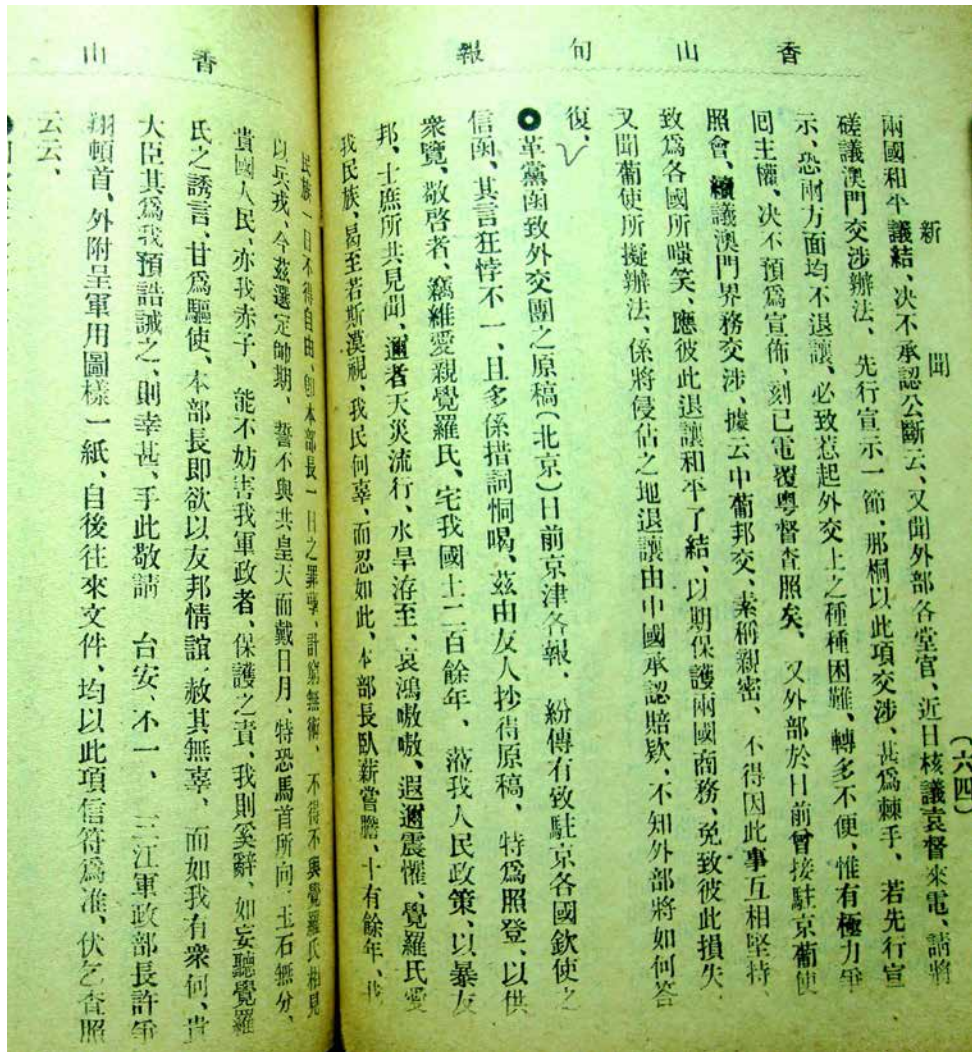 香山旬報
新聞
(六四)
兩國和平議結、決不承認公斷云、又聞外部各堂官、近日核議袁督來電、請將
磋議澳門交涉辦法、先行宣示一節、那桐以此項交涉、甚爲棘手、若先行宣
示、恐兩方面均不退讓、必致惹起外交上之種種困難、轉多不便、惟有極力爭
回主權、決不預爲宣佈、刻已電覆粤督查照矣、又外部於日前曾接駐京葡使
照會、續議澳門界務交涉、據云中葡邦交、素稱親密、不得因此事互相堅持、
致爲各國所嗤笑、應彼此退讓和平了結、以期保護兩國商務、免致彼此損失、
又聞葡使所擬辦法、係將侵佔之地退讓由中國承認賠欵、不知外部將如何答
復、
●革黨函致外交團之原稿(北京)日前京津各報、紛傳有致駐京各國欽使之
信函、其言狂悖不一、且多係措詞恫喝、茲由友人抄得原稿、特爲照登、以供
衆覽、敬啓者、竊維愛親覺羅氏、宅我國土二百餘年、蒞我人民政策、以暴友
邦、士庶所共見聞、邇者天災流行、水旱洊至、哀鴻嗷嗷、遐邇震懼、覺羅氏愛
我民族、曷至若斯漠視、我民何辜、而忍如此、本部長臥薪嘗膽、十有餘年、我
民族一日不得自由、卽本部長一日之罪孽、計窮無術、不得不與覺羅氏相見
以兵戎、今茲選定師期、誓不與共皇天而戴日月、特恐馬首所向、玉石無分、
貴國人民、亦我赤子、能不妨害我軍政者、保護之責、我則奚辭、如妄聽覺羅
氏之誘言、甘爲驅使、本部長即欲以友邦情誼、赦其無辜、而如我有衆何、貴
大臣其爲我預誥誡之、則幸甚、手此敬請 台安、不一、三江軍政部長許爭
翔頓首、外附呈軍用圖樣一紙、自後往來文件、均以此項信符爲准、伏乞查照
云云、
香山